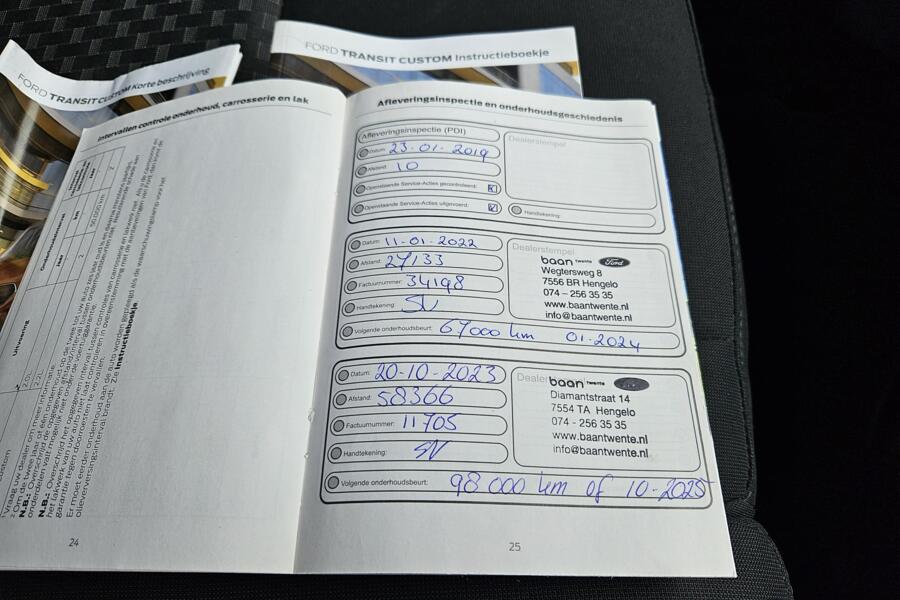 FORD TRANSIT CUSTOM Korte beschrijving
FORD TRANSIT CUSTOM Instructieboekje
Intervallen controle onderhoud, carrosserie en lak
24
Afleveringsinspectie en onderhoudsgeschiedenis
Afleveringsinspectie (PDI)
Datum: 23-01-2019
Afstand: 10
Openstaande Service-Acties gecontroleerd:
Openstaande Service-Acties uitgevoerd:
Dealerstempel
Handtekening:
Datum: 11-01-2022
Afstand: 27133
Factuurnummer: 34198
Handtekening: SV
Volgende onderhoudsbeurt: 67000 km 01-2024
Dealerstempel
baan twente Ford
Wegtersweg 8
7556 BR Hengelo
074 - 256 35 35
www.baantwente.nl
info@baantwente.nl
Datum: 20-10-2023
Afstand: 58366
Factuurnummer: 11705
Handtekening: SV
Volgende onderhoudsbeurt: 98000 km of 10-2025
baan twente
Diamantstraat 14
7554 TA Hengelo
074 - 256 35 35
www.baantwente.nl
info@baantwente.nl
25